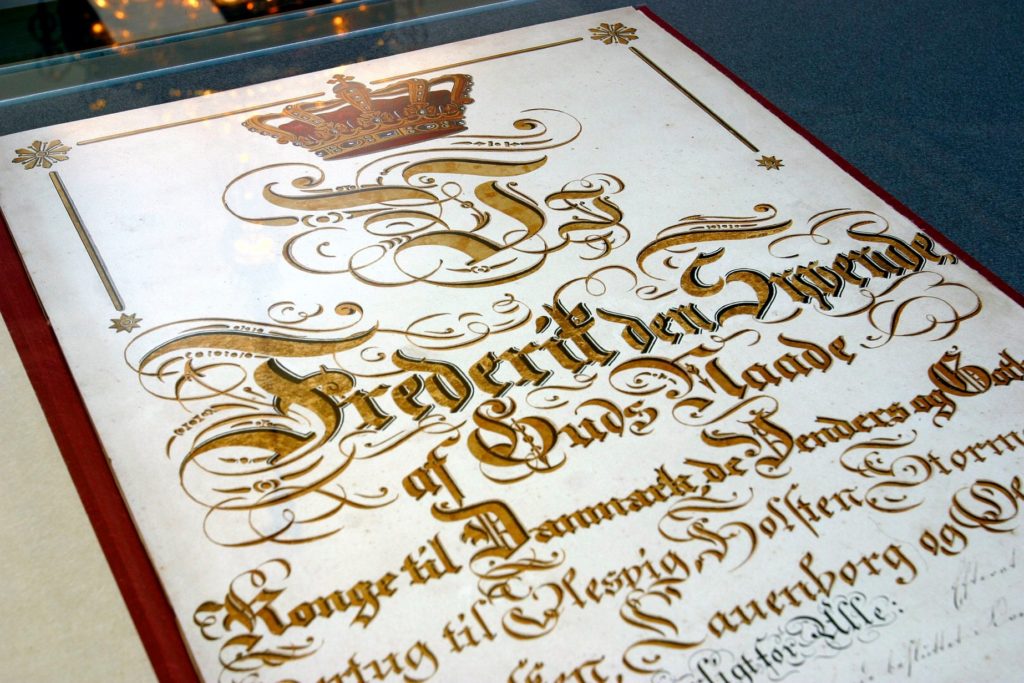 Frederik den Syvende,
af Guds Naade
Konge til Danmark, de Venders og Goth
ertug til Slesvig, Holsten, Storm
Lauenborg og
ligt for Alle:
Efterat
besluttet